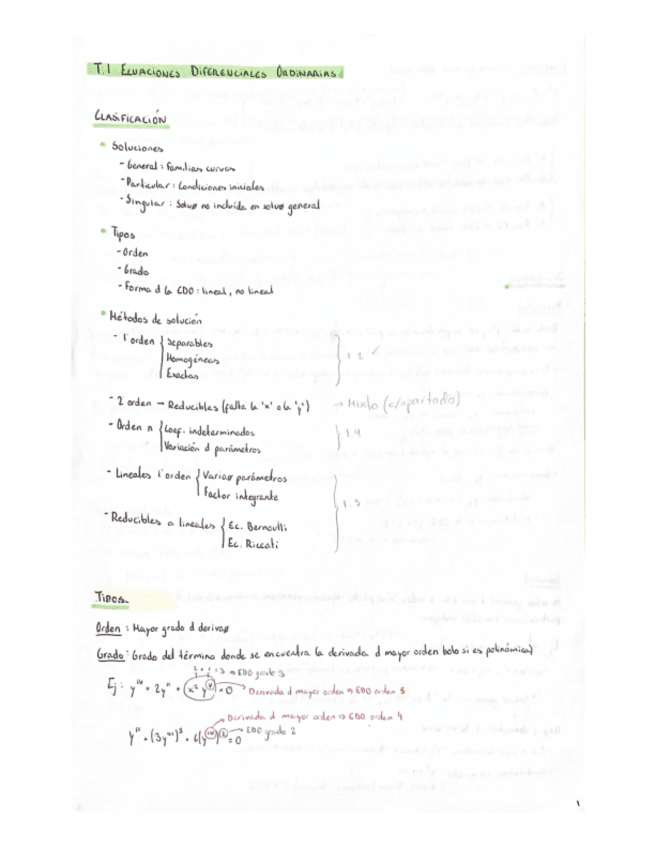 T.1 ECUACIONES DIFERENCIALES ORDINARIAS
CLASIFICACIÓN
• Soluciones
- General: Familias curvas
- Particular: Condiciones iniciales
- Singular: no incluida en general
• Tipos
- Orden
- Grado
- Forma d la EDO: lineal, no lineal
• Métodos de solución
- 1º orden { Separables
Homogéneas
Exactas } 1.2 ✓
- 2 orden → Reducibles (falta la 'x' o la 'y') → Mixto (c/apartado)
- Orden n { Coef. indeterminados
Variación d parámetros } 1.4
- Lineales 1º orden { parámetros
Factor integrante
- Reducibles a lineales { Ec. Bernoulli
Ec. Riccati
TIPOS
Orden: Mayor grado d
Grado: Grado del término donde se encuentra la derivada d mayor orden (solo si es polinómica)
⇒ EDO grado 3
Ej: = 0 → Derivada d mayor orden ⇒ EDO orden 5
→ Derivada d mayor orden ⇒ EDO orden 4
= 0 → EDO grado 2
1